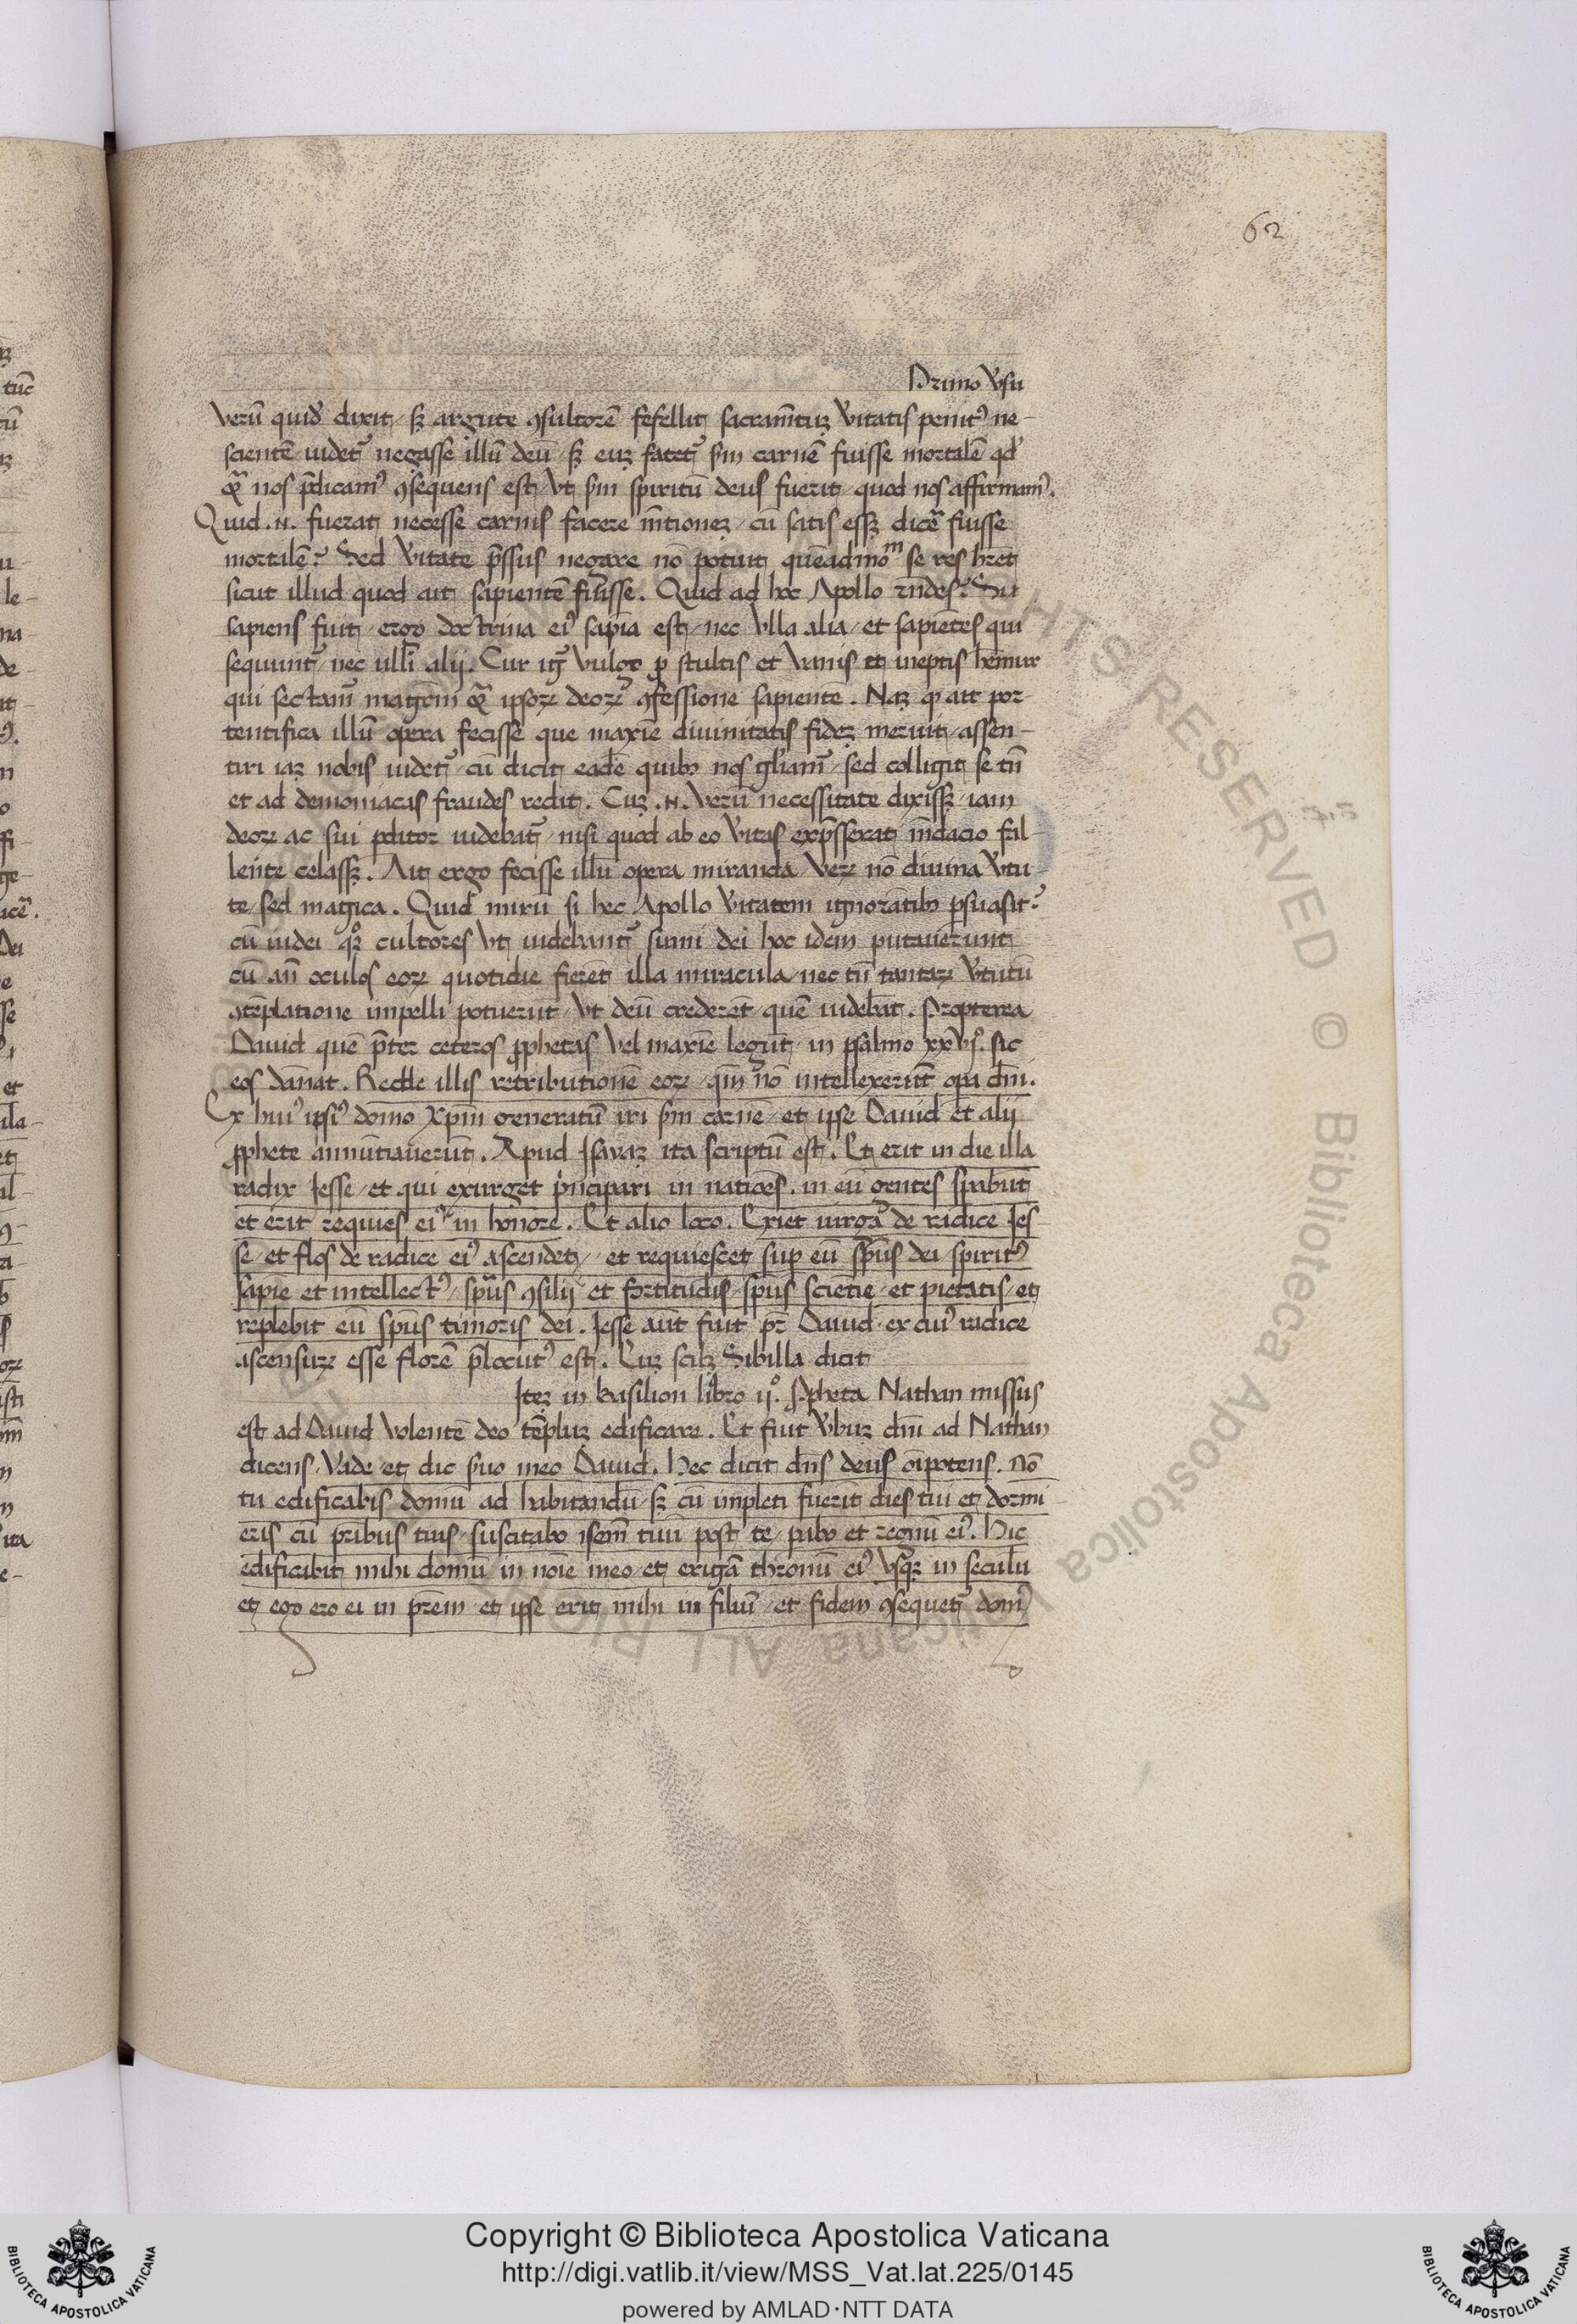 62
Primo v̄su
verū quidē dixit / sꝫ argute ꝯsultorē fefellit / sacram̄tuꝫ v̄itatis penitꝰ ne-
scientē / videt᷑ negasse illū deū / sꝫ euꝫ fatet᷑ ẜm carnē fuisse mortalē qd̓
qᷓ nos p̄dicamꝰ ꝯsequens est / vt ẜm spiritū deus fuerit / quod nos affirmamꝰ.
Quid .N. fuerat necesse carnis facere m̄tioneꝫ / cū satis essꝫ dicē fuisse
mortalē? Sed v̄itate p̄ssus negare nō potuit quēadmoᵐ se res hꝫet
sicut illud quod ait sapientē fuisse. Quid ad hoc Apollo rn̄des? Si
sapiens fuit / ergo doctrina eiꝰ sapīa est / nec vlla alia / et sapiētes qui
sequunt᷑ / nec ulli alij. Cur itꝫ vulgo ꝓ stultis et vanis et ineptis hēmur
qui sectam᷑ magr̄m qᷓ ipsoꝝ deoꝝ ꝯfessione sapientē. Naꝫ qꝫ ait por-
tentifica illū opera fecisse que maxīe divinitatis fideꝫ meruit / assen-
tiri iaꝫ nobis videt᷑ / cū dicit eadē quibꝰ nos gl̓iam᷑ / sed colligit se tn̄
et ad demoniacas fraudes redit. Cuꝫ .N. verū necessitate dixissꝫ / iam
deoꝝ ac sui ꝓditor videbat᷑ / nisi quod ab eo v̄itas exp̄sserat m̄dacio fal-
lente celassꝫ. Ait ergo fecisse illū opera miranda / veꝝ nō divina v̄tu-
te / sed magica. Quid mirū si hec Apollo v̄itatem ignorātibꝰ ꝑsuasit?
cū iudei qꝫ cultores vt videbant᷑ sūmi dei hoc idem putaverunt
cū an̄ oculos eoꝝ quotidie fierēt illa miracula / nec tn̄ tantaꝝ v̄tutū
ꝯtēplatione impelli potuerūt / vt deū crederēt quē videbāt. Propterea
David quē p̄ter ceteros ꝓphetas vel maxīe legūt / in psalmo xxvijº. sic
eos dānat. Redde illis retributionē eoꝝ / qm̄ nō intellexerūt opa dn̄i.
Ex huiꝰ ipsiꝰ domo xp̄m generatū iri ẜm carnē / et ipse David et alij
ꝓphete annūtiaverūt. Apud Isayaꝫ ita scriptū est. Et erit in die illa
radix Iesse / et qui exurget p̄ncipari in natiōes. in eū gentes sꝑabūt
et erit requies eiꝰ in honore. Et alio loco. Exiet virga de radice Ies
se / et flos de radice eiꝰ ascendet / et requiescet suꝑ eū sp̄us dei spiritꝰ
sapīe et intellectꝰ / sp̄us ꝯsilij et fortitudis / sp̄us sciētie et pietatis / et
replebit eū sp̄us timoris dei. Iesse aūt fuit pr̄ David / ex cuiꝰ radice
ascensuꝝ esse florē p̄locutꝰ est. Cuꝫ scilꝫ Sibilla dicit
Iteꝫ in basilion libro ijº. ꝓpheta Nathan missus
est ad David volentē deo tēpluꝫ edificare. Et fuit v̄buꝫ dn̄i ad Nathan
dicens. Vade et dic ẜuo meo David. Hec dicit dn̄s deus oīpotens. nō
tu edificabis domū ad habitandū / sꝫ cū impleti fuerit dies tui et dormi
eris cū pr̄ibus tuis / suscitabo ꝓsem̄ tuū post te / ꝑabo et regnū eiꝰ. Hic
edificabit mihi domū in noīe meo / et erigā thronū eiꝰ vsqꝫ in seculū
et ego ero ei in pr̄em / et ipse erit mihi in filiū / et fidem ꝯsequet᷑ domꝰ
Copyright © Biblioteca Apostolica Vaticana
http://digi.vatlib.it/view/MSS_Vat.lat.225/0145
powered by AMLAD·NTT DATA